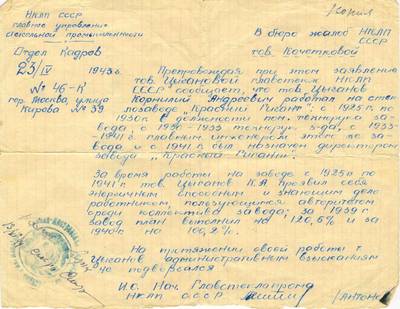 Копия
НКЛП СССР
Главное управление
стекольной промышленности
Отдел Кадров
В бюро жалоб НКЛП
СССР
тов. Кочетковой
23/IV 1943г.
№ 46-К
гор. Москва, улица
Кирова № 39
Препровождая при этом заявление
тов. Цыгановой Главстекло НКЛП
СССР сообщает, что тов. Цыганов
Корнилий Андреевич работал на стек
лозаводе „Красный Гигант" с 1925г. по
1930г. в должности пом. технорука за-
вода, с 1930-1933 технорук з-да, с 1933-
-1941г. главным инженером этого же за-
вода и с 1941г. был назначен директором
завода „Красный Гигант".
За время работы на заводе с 1925г. по
1941г. тов. Цыганов К.А. проявил себя
энергичным способным и знающим дело
работником, пользующимся авторитетом
среди коллектива завода; за 1939г.
завод план выполнил на 120,6% и за
1940г. на 100,2%.
На протяжении своей работы т.
Цыганов административным взысканиям
не подвергался
И.О. Нач. Главстеклопрома
НКЛП СССР
/Антоно